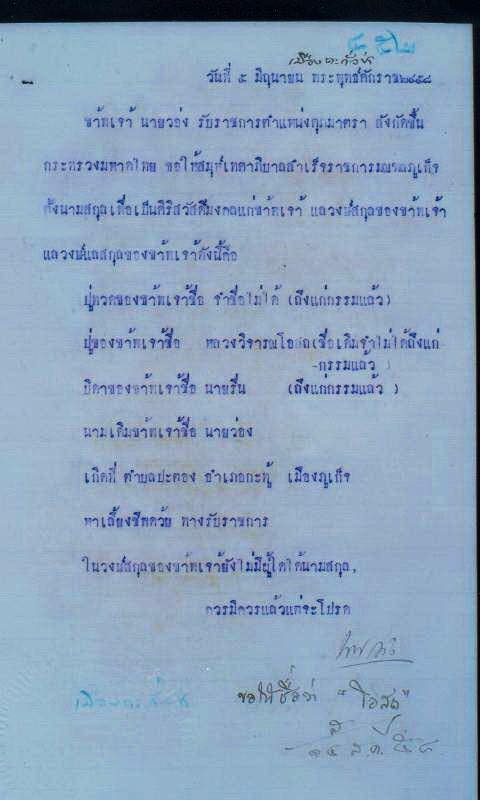 ๔ ๕๒
เมืองตะกั่วป่า
วันที่ ๕ มิถุนายน พระพุทธศักราช๒๔๕๘
ข้าพเจ้า นายว่อง รับราชการตำแหน่งตุมาตรา สังกัดขึ้น
กระทรวงมหาดไทย ขอให้สมุหเทศาภิบาลสำเร็จราชการมณฑลภูเก็จ
ตั้งนามสกุลเพื่อเป็นศิริสวัสดีมงคลแก่ข้าพเจ้า แลวงษ์สกุลของข้าพเจ้า
แลวงษ์แลสกุลของข้าพเจ้าดังนี้คือ
ปู่ทวดของข้าพเจ้าชื่อ จำชื่อไม่ได้ (ถึงแก่กรรมแล้ว)
ปู่ของข้าพเจ้าชื่อ หลวงวิจารณโอสถ(ชื่อเดิมจำไม่ได้ถึงแก่
-กรรมแล้ว )
บิดาของข้าพเจ้าชื่อ นายรื่น (ถึงแก่กรรมแล้ว )
นามเดิมข้าพเจ้าชื่อ นายว่อง
เกิดที่ ตำบลปะตอง อำเภอกะทู้ เมืองภูเก็จ
หาเลี้ยงชีพด้วย ทางรับราชการ
ในวงษ์สกุลของข้าพเจ้ายังไม่มีผู้ใดได้นามสกุล,
ควรมิควรแล้วแต่จะโปรด
เมืองตะกั่วป่า ขอให้ชื่อว่า "โอสถ"
๑๔ ส.ค. ๕๘